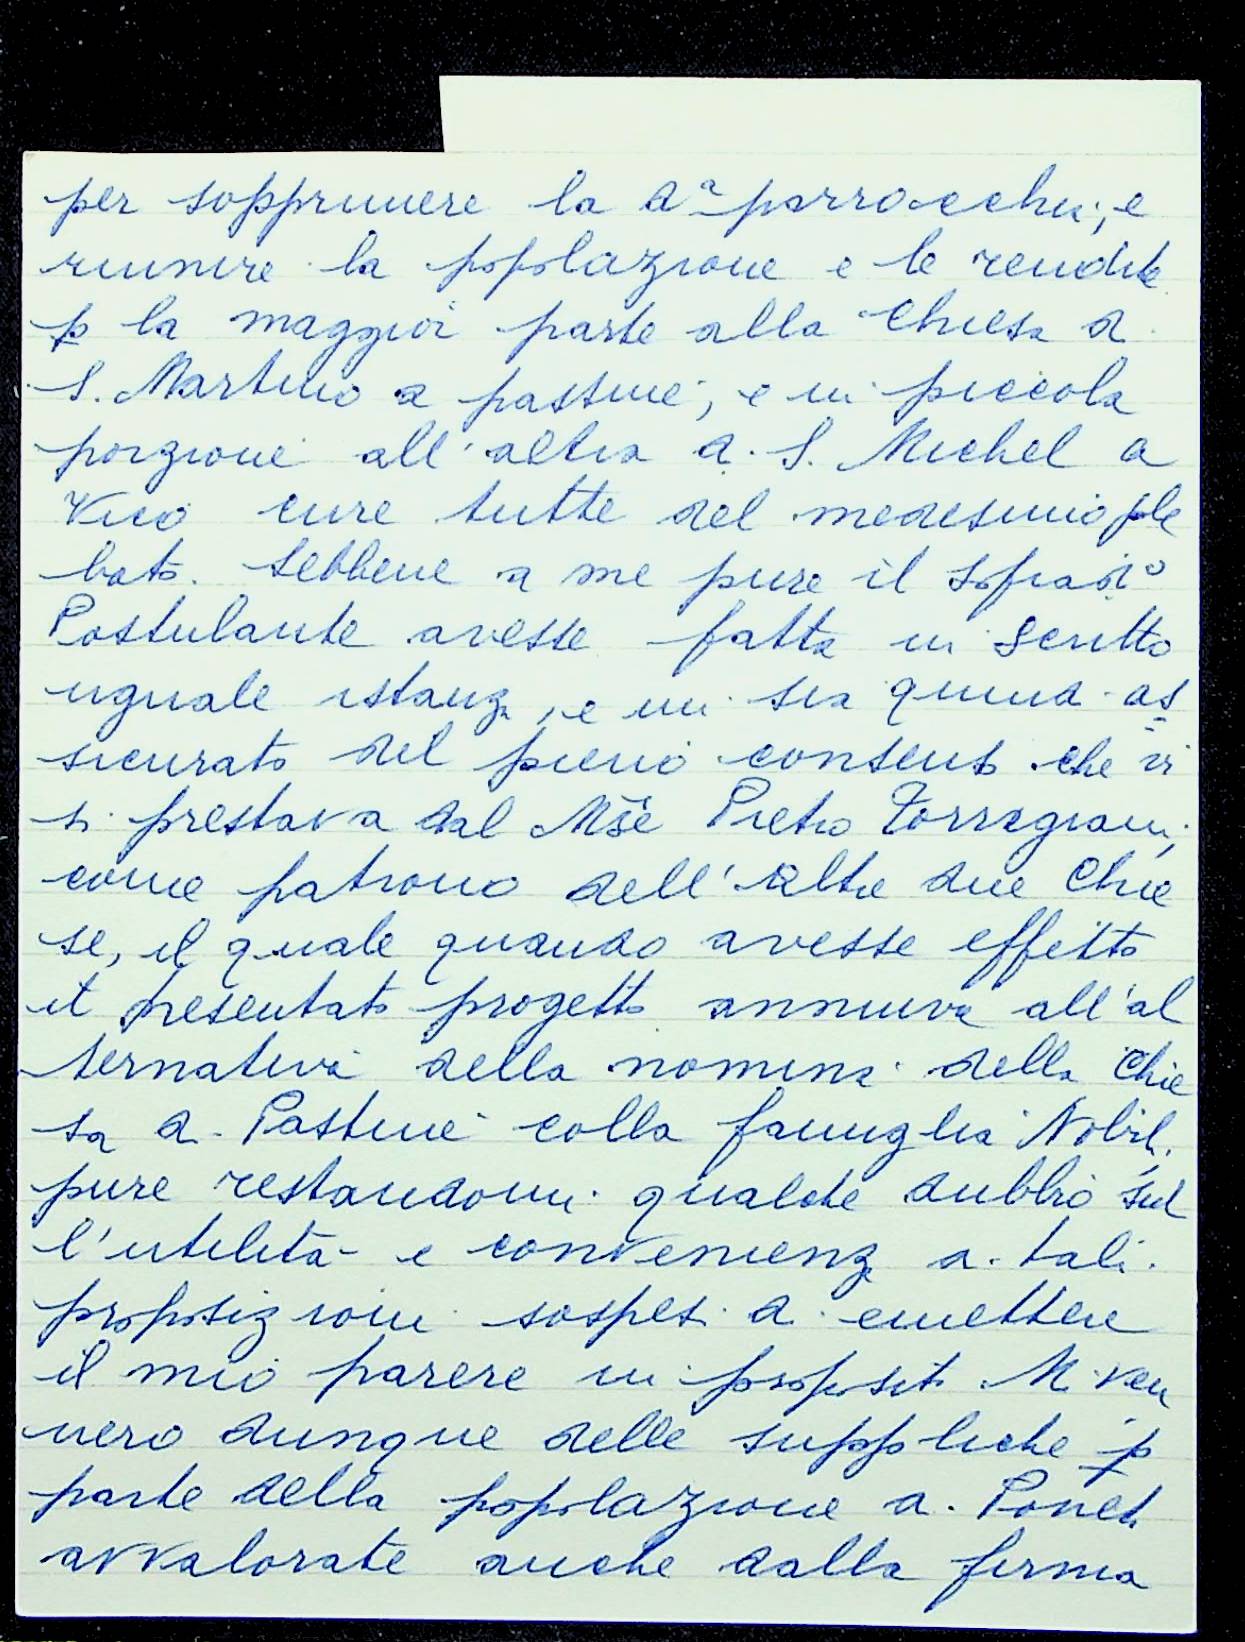 per sopprimere la dª parrocchia, e
riunire la popolazione e le rendite
p la maggior parte alla Chiesa di
S. Martino a pastine, e in piccola
porzione all'altra di S. Michel a
Vico cure tutte del medesimo ple
bato. Sebbene a me pure il sopradº
Postulante avesse fatta in scritto
uguale istanza, e mi sia quindi as
sicurato del pieno consenso che vi
si prestava dal Mse Pietro Torrigiani,
come patrono dell'altre due Chie
se, il quale quando avesse effetto
il presentato progetto annuiva all'al
ternativa della nomina della Chie
sa di Pastine colla famiglia Nobili,
pure restandomi qualche dubbio sul
l'utilità e convenienza di tali
proposizioni sospesi di emettere
il mio parere in proposito. Mi ven
nero dunque delle suppliche p
parte della popolazione di Poneta
avvalorate anche dalla firma